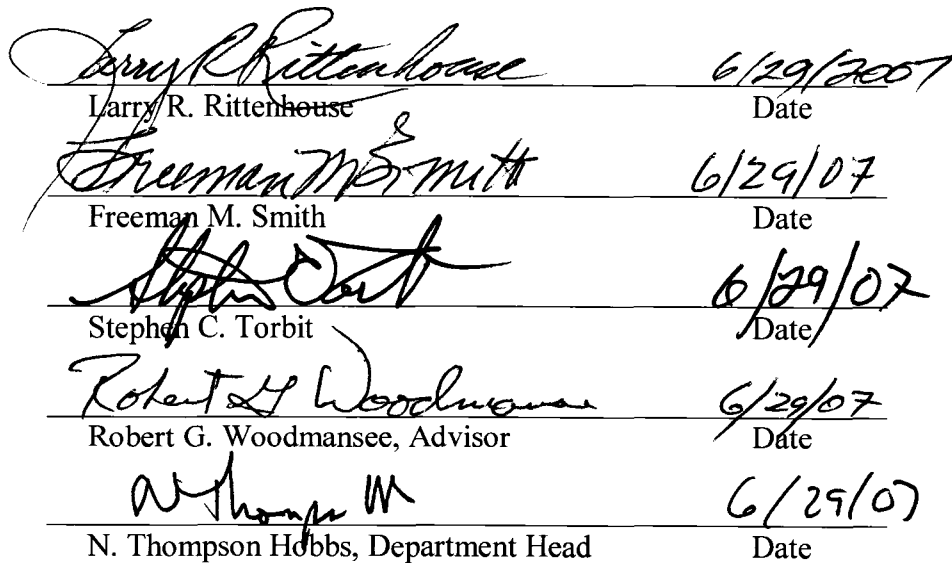 Larry R Rittenhouse 6/29/2007
Larry R. Rittenhouse Date
Freeman M Smith 6/29/07
Freeman M. Smith Date
Stephen Torbit 6/29/07
Stephen C. Torbit Date
Robert G Woodmansee 6/29/07
Robert G. Woodmansee, Advisor Date
N Thompson 6/29/07
N. Thompson Hobbs, Department Head Date